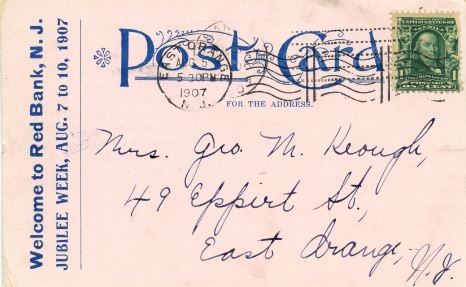 Welcome to Red Bank, N. J.
JUBILEE WEEK, AUG. 7 TO 10, 1907
Post Card
FOR THE ADDRESS.
EAST ORANGE
5 30 PM
1907
N. J.
ONE CENT
Mrs. Geo. M. Keough,
49 Eppirt St,
East Orange,
N. J.